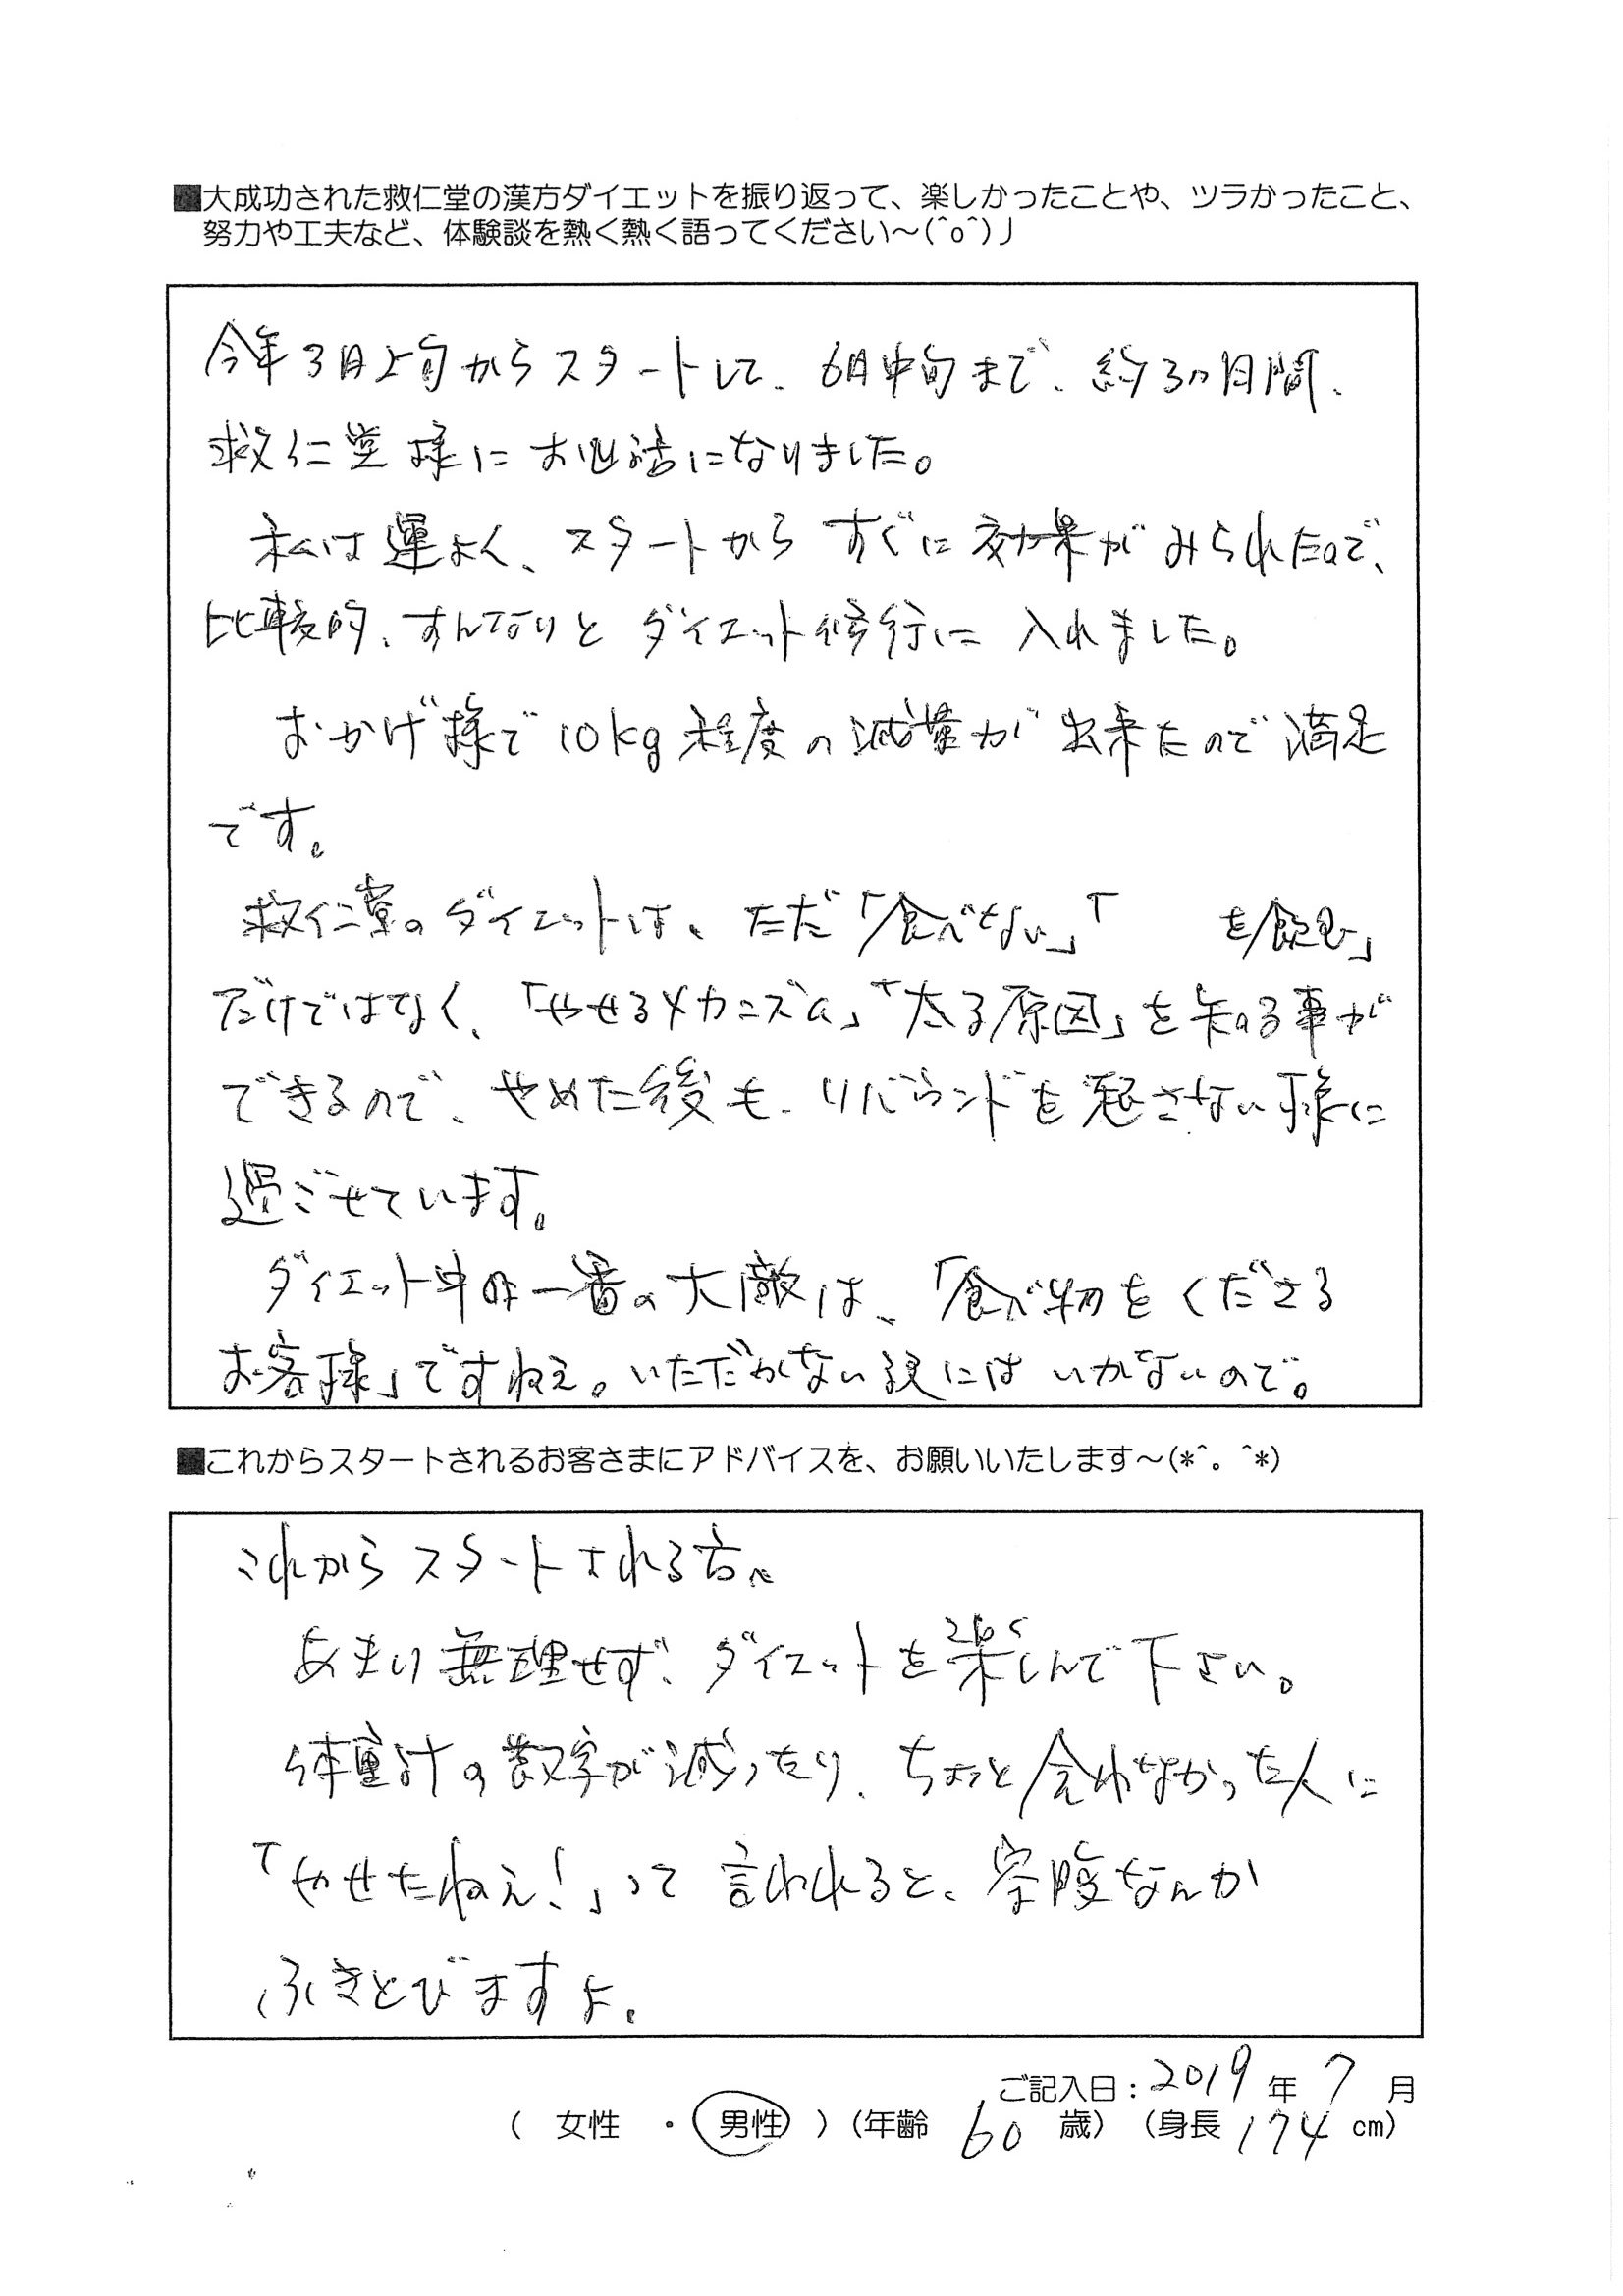 ■大成功された救仁堂の漢方ダイエットを振り返って、楽しかったことや、ツラかったこと、
努力や工夫など、体験談を熱く熱く語ってください～(^o^)丿
今年3月上旬からスタートして、6月中旬まで、約3ヶ月間、
救仁堂様にお世話になりました。
私は運よく、スタートからすぐに効果がみられたので、
比較的、すんなりとダイエット修行に入れました。
おかげ様で10kg程度の減量が出来たので満足
です。
救仁堂のダイエットは、ただ「食べない」「 を飲む」
だけではなく、「やせるメカニズム」「太る原因」を知る事が
できるので、やめた後も、リバウンドを起さない様に
過ごせています。
ダイエット中の一番の大敵は、「食べ物をくださる
お客様」ですねえ。いただかない訳にはいかないので。
■これからスタートされるお客さまにアドバイスを、お願いいたします～(*^。^*)
これからスタートされる方へ
あまり無理せず、ダイエットを楽しんで下さい。
体重計の数字が減ったり、ちょっと会わなかった人に
「やせたねえ!」って言われると、空腹なんか
ふきとびますよ。
ご記入日：2019年7月
( 女性 ・ 男性 ) (年齢 60 歳) (身長 174 cm)